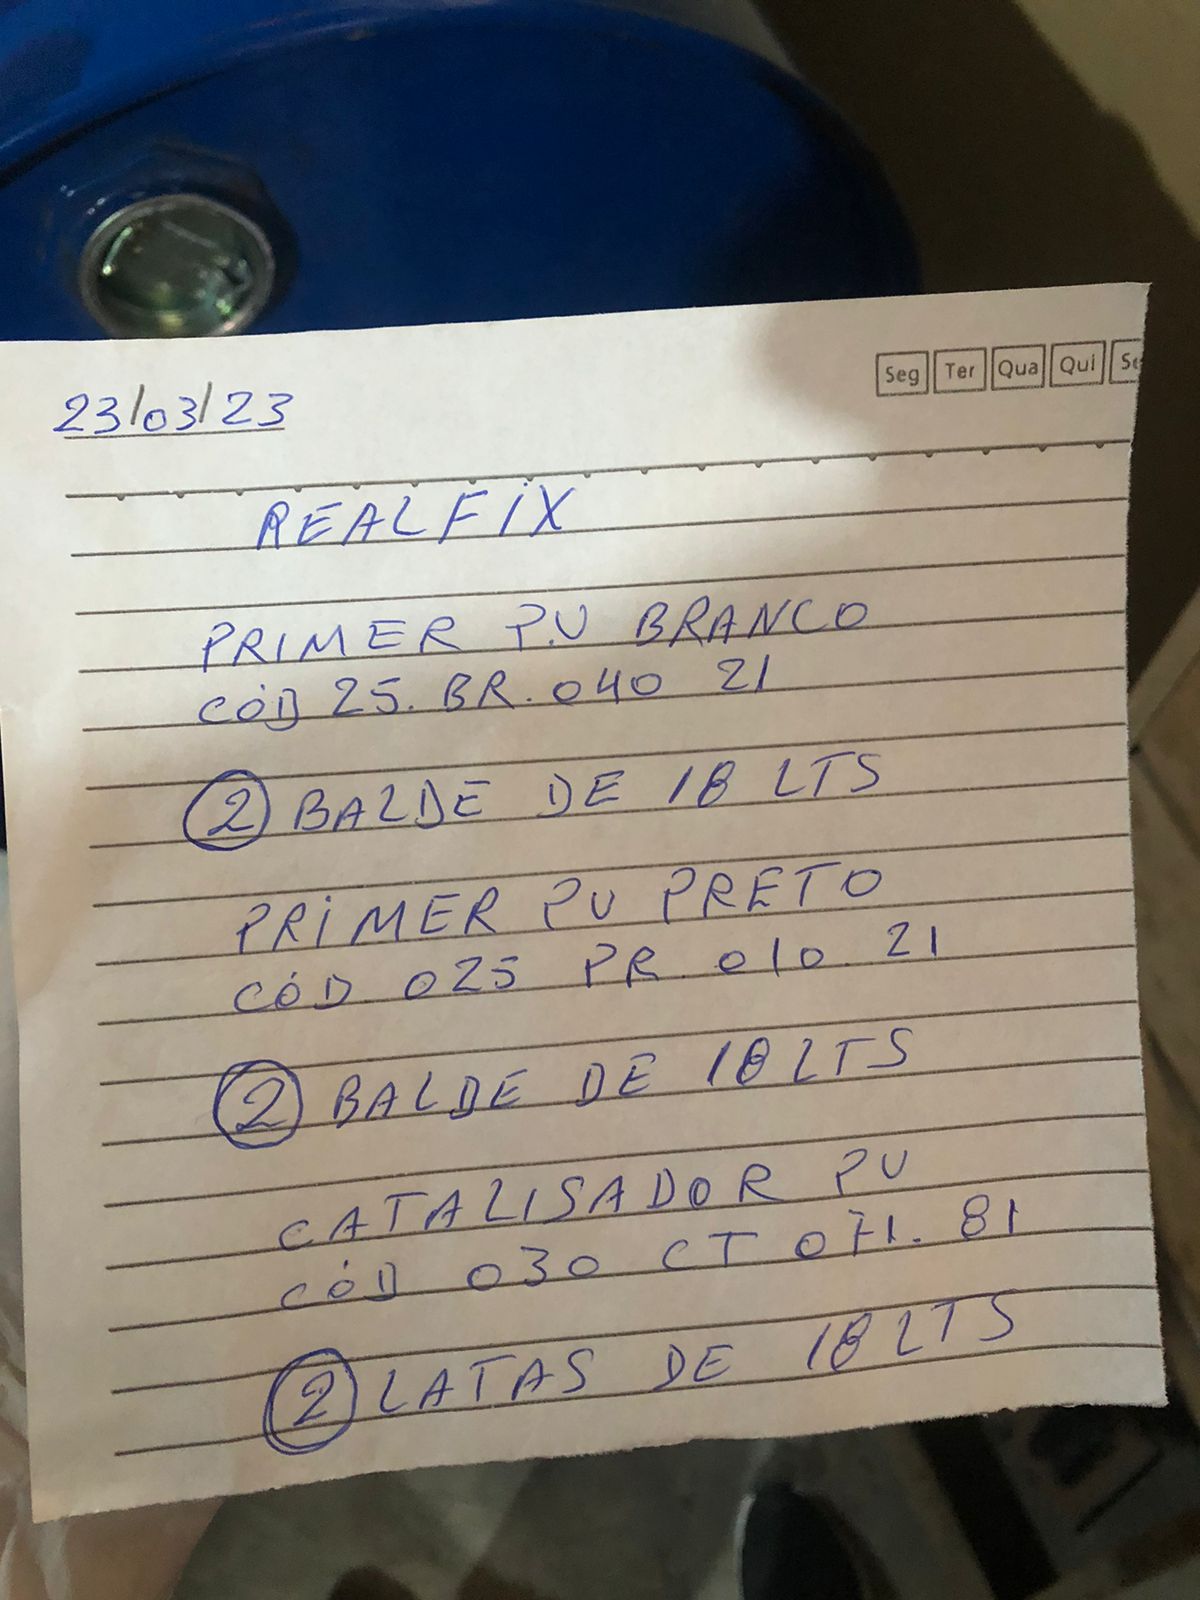 Seg Ter Qua Qui
23/03/23
REALFIX
PRIMER P.U BRANCO
CÓD 25. BR. 040 21
2 BALDE DE 18 LTS
PRIMER PU PRETO
CÓD. 025 PR. 010. 21
2 BALDE DE 18 LTS
CATALISADOR PU
CÓD 030 CT 071. 81
2 LATAS DE 18 LTS